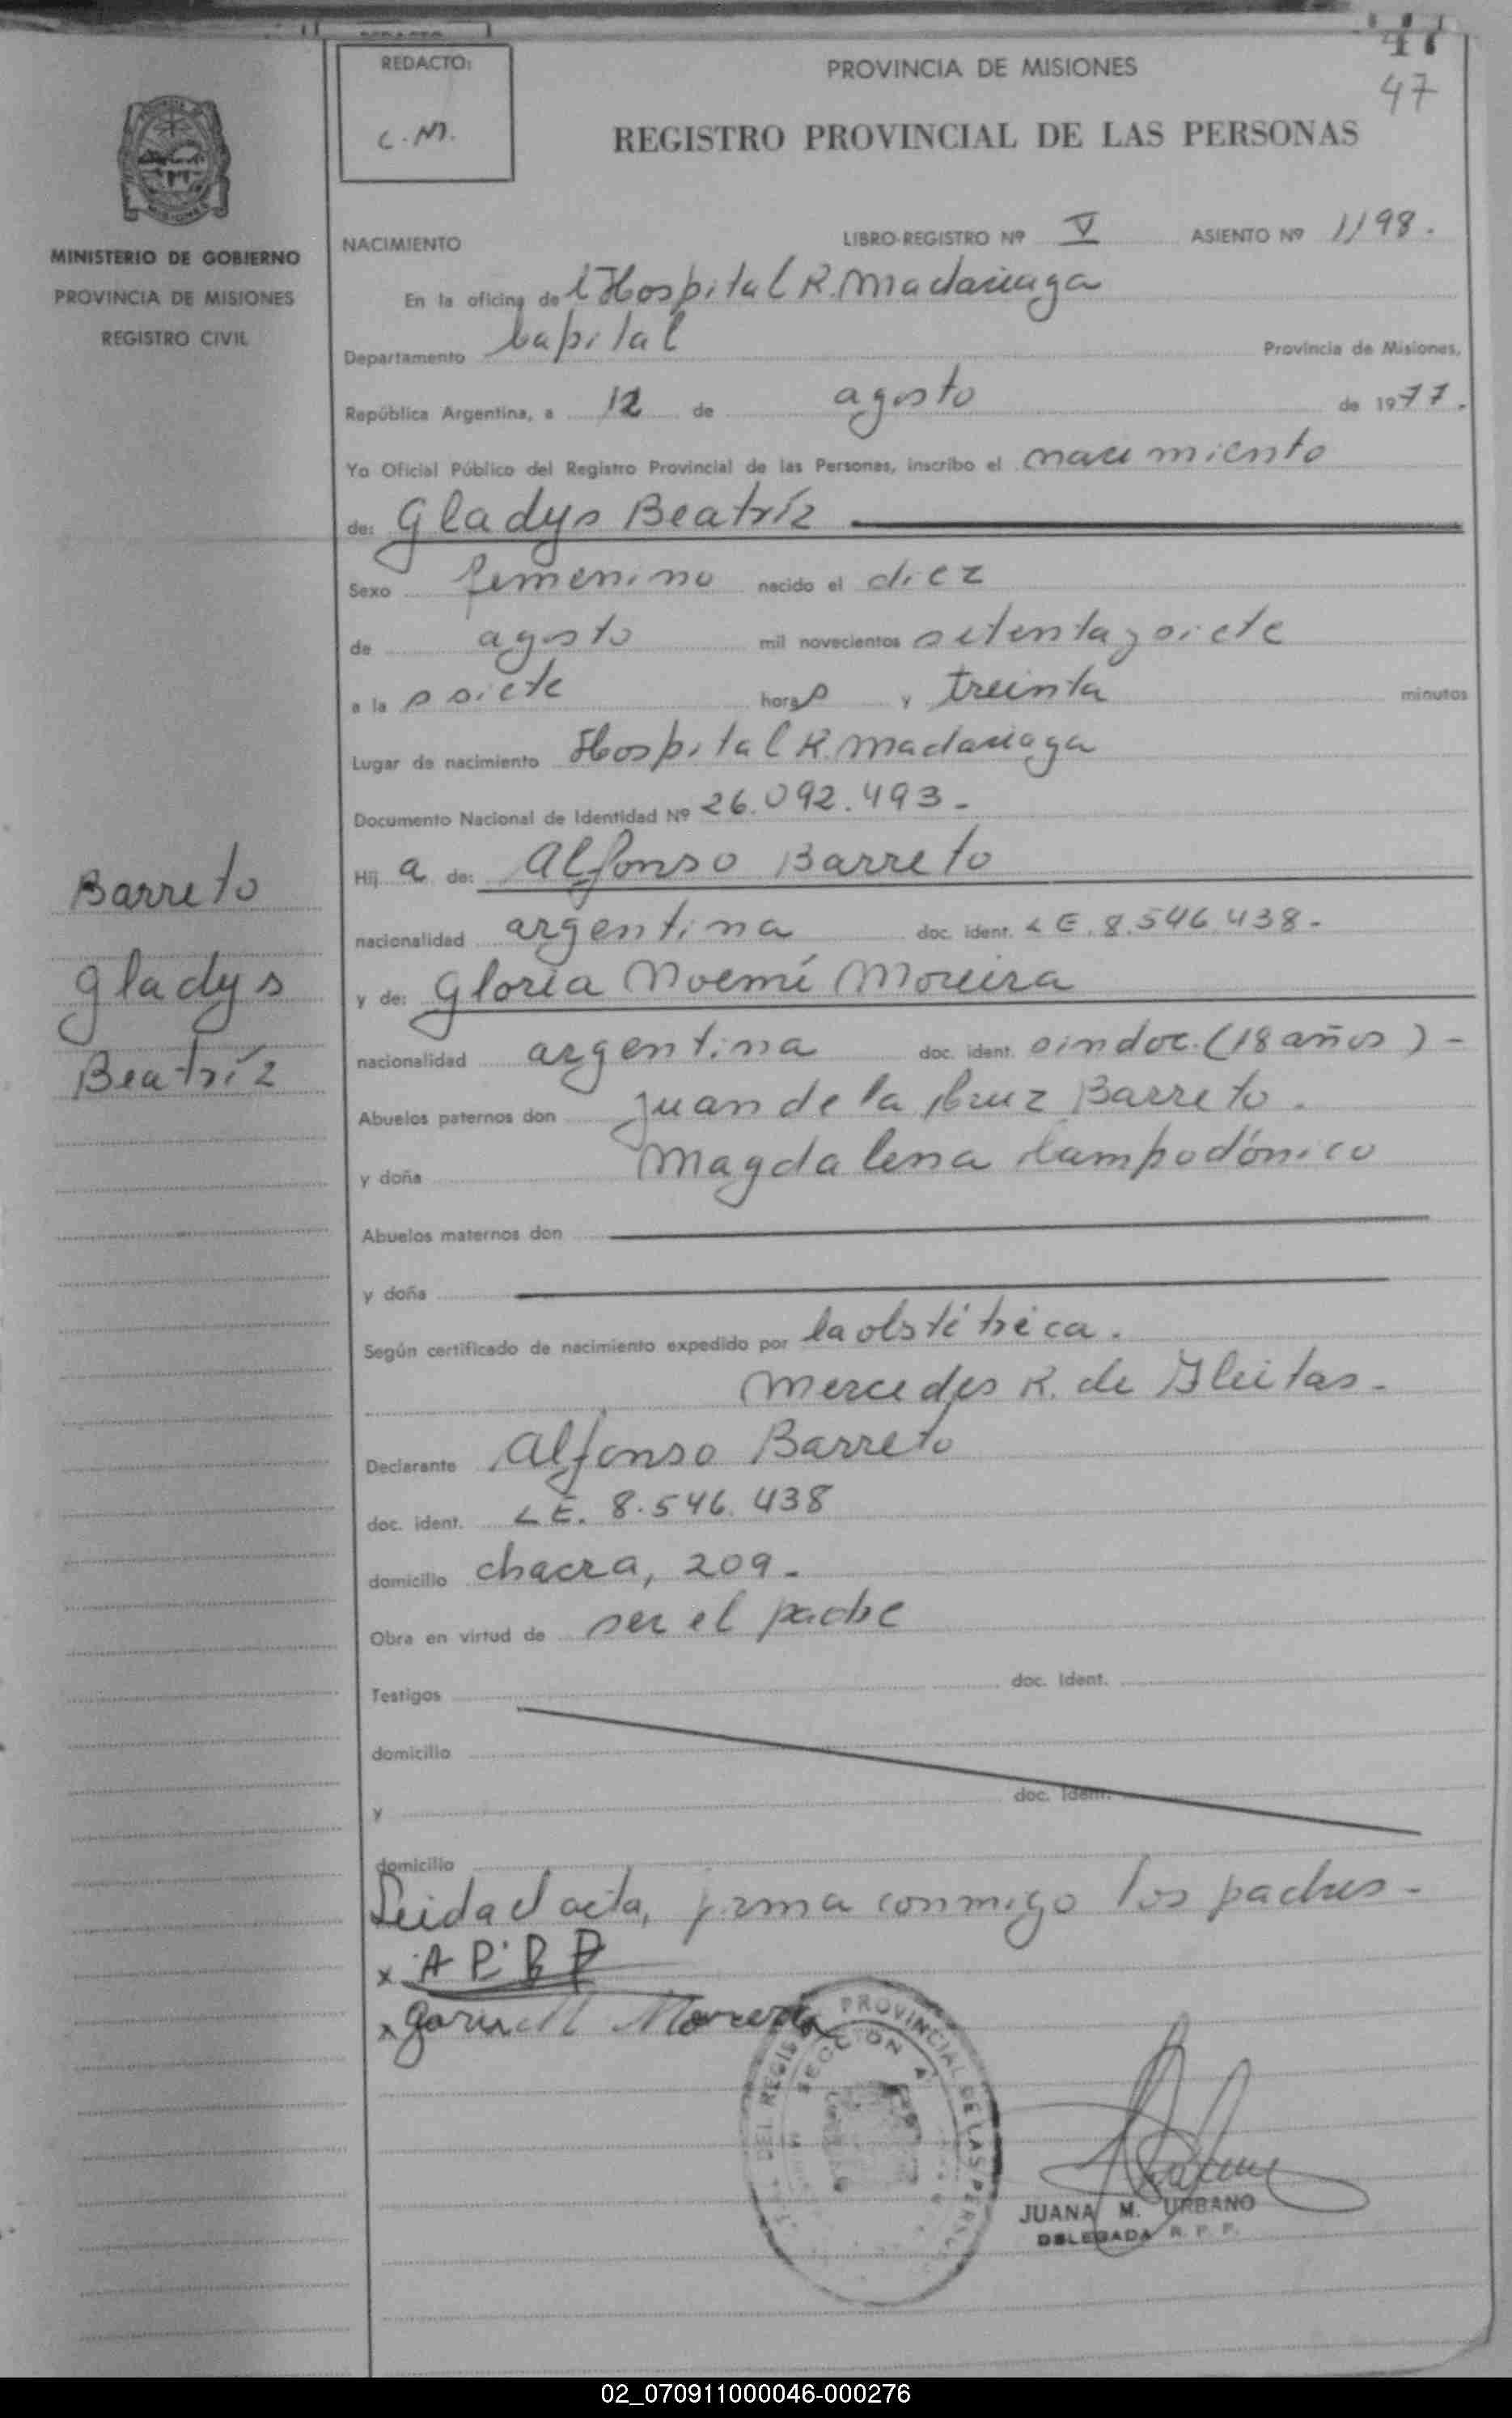 REDACTO:
C.M.
PROVINCIA DE MISIONES
47
REGISTRO PROVINCIAL DE LAS PERSONAS
MINISTERIO DE GOBIERNO
PROVINCIA DE MISIONES
REGISTRO CIVIL
NACIMIENTO LIBRO-REGISTRO Nº V ASIENTO Nº 1198.
En la oficina del Hospital R. Madariaga
Departamento Capital Provincia de Misiones,
República Argentina, a 12 de agosto de 1977.
Yo Oficial Público del Registro Provincial de las Personas, inscribo el nacimiento
de: Gladys Beatríz
Sexo femenino nacido el diez
de agosto mil novecientos setenta y siete
a las siete horas y treinta minutos
Lugar de nacimiento Hospital R. Madariaga
Documento Nacional de Identidad Nº 26.092.493-
Hija de: Alfonso Barreto
nacionalidad argentina doc. ident. LE. 8.546.438-
y de: Gloria Noemí Moreira
nacionalidad argentina doc. ident. sin doc. (18 años)-
Abuelos paternos don Juan de la Cruz Barreto.
y doña Magdalena Campodónico
Abuelos maternos don
y doña
Según certificado de nacimiento expedido por la obstétrica.
Mercedes R. de Gleitas-
Declarante Alfonso Barreto
doc. ident. LE. 8.546.438
domicilio chacra, 209-
Obra en virtud de ser el padre
Testigos doc. Ident.
domicilio
y doc. Ident.
domicilio
Leida el acta, firma conmigo los padres-
x
x
Barreto
Gladys
Beatríz
PROVINCIAL DE LAS PERS
DEL REGIS
SECCIÓN
JUANA M. URBANO
DELEGADA R. P. P.
02_070911000046-000276